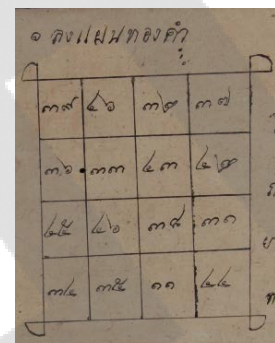 ๏ ลงแผนทองคำ
๓๙ ๔๖ ๓๒ ๓๗
๓๖ ๓๓ ๔๓ ๔๒
๔๕ ๔๖ ๓๘ ๓๑
๓๔ ๓๕ ๑๑ ๔๔